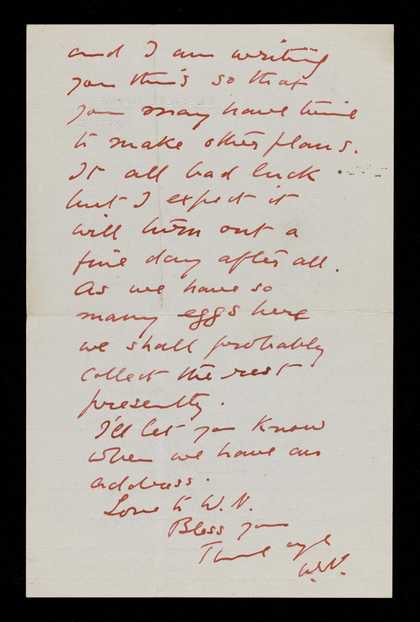 and I am writing
you this so that
you may have time
to make other plans.
It all bad luck
but I expect it
will turn out a
fine day after all.
As we have so
many eggs here
we shall probably
collect the rest
presently.
I'll let you know
when we have an
address.
Love to W.N.
Bless you